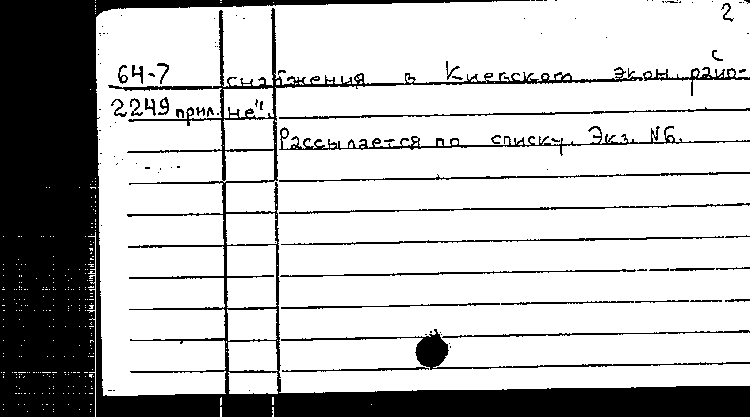 2
64-7 снабжения в Киевском экон. райо-
2249 прил. не".
Рассылается по списку. Экз. №6.